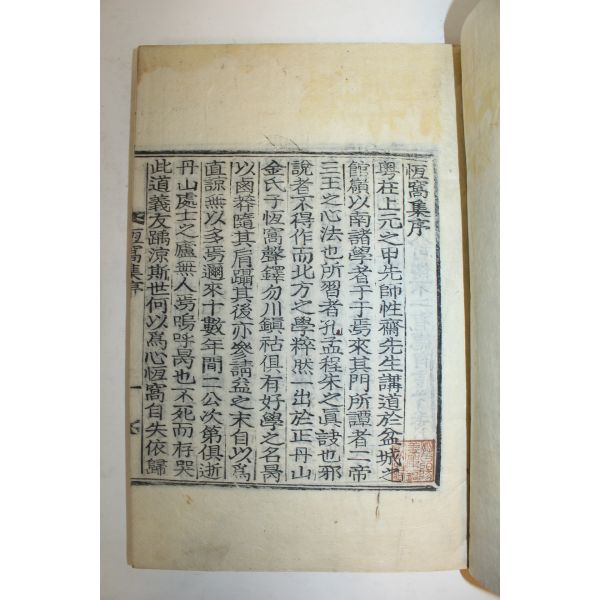 恆窩集序
粤在上元之甲先師性齋先生講道於盆城之
館嶺以南諸學者于于焉來其門所譚者二帝
三王之心法也所習者孔孟程朱之眞詖也邪
說者不得作而北方之學粹然一出於正丹山
金氏子恆窩聲鐸勿川鎭祜俱有好學之名昺
以鹵莽隨其肩躡其後亦參請益之末自以爲
直諒無以多焉邇來十數年間二公次第俱逝
丹山處士之廬無人焉嗚呼昺也不死而存哭
此道義友踽涼斯世何以爲心恆窩自失依歸
恆窩集序
一